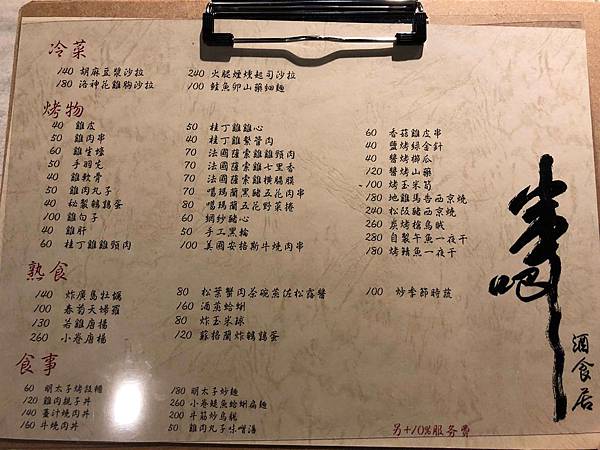 冷菜
140 胡麻豆漿沙拉
180 洛神花雞胸沙拉
240 火腿煙燻起司沙拉
100 鮭魚卵山藥細麵
烤物
40 雞皮
50 雞肉串
60 雞生蠔
50 手羽先
40 雞軟骨
50 雞肉丸子
40 秘製鵪鶉蛋
100 雞白子
40 雞肝
60 桂丁雞雞頸肉
50 桂丁雞雞心
40 桂丁雞繫管肉
70 法國薩索雞雞頸肉
70 法國薩索雞七里香
70 法國薩索雞橫膈膜
70 噶瑪蘭黑豬五花肉串
80 噶瑪蘭五花野菜捲
60 網紗豬心
50 手工黑輪
100 美國安格斯牛燒肉串
60 香菇雞皮串
40 鹽烤綠金針
40 醬烤櫛瓜
50 醬烤山藥
100 烤玉米筍
180 地雞馬告西京燒
240 松阪豬西京燒
260 炭烤槍烏賊
280 自製午魚一夜干
180 烤鯖魚一夜干
熟食
140 炸廣島牡蠣
100 春蒟天婦羅
130 若雞唐揚
260 小卷唐揚
80 松葉蟹肉茶碗蒸佐松露醬
160 酒蒸蛤蜊
80 炸玉米球
120 蘇格蘭炸鵪鶉蛋
100 炒季節時蔬
食事
60 明太子烤飯糰
120 雞肉親子丼
140 薑汁燒肉丼
160 牛燒肉丼
180 明太子炒麵
260 小卷鯷魚蛤蜊扁麵
200 牛筋炒烏龍
50 雞肉丸子味噌湯
另+10%服務費
串吧
酒食居